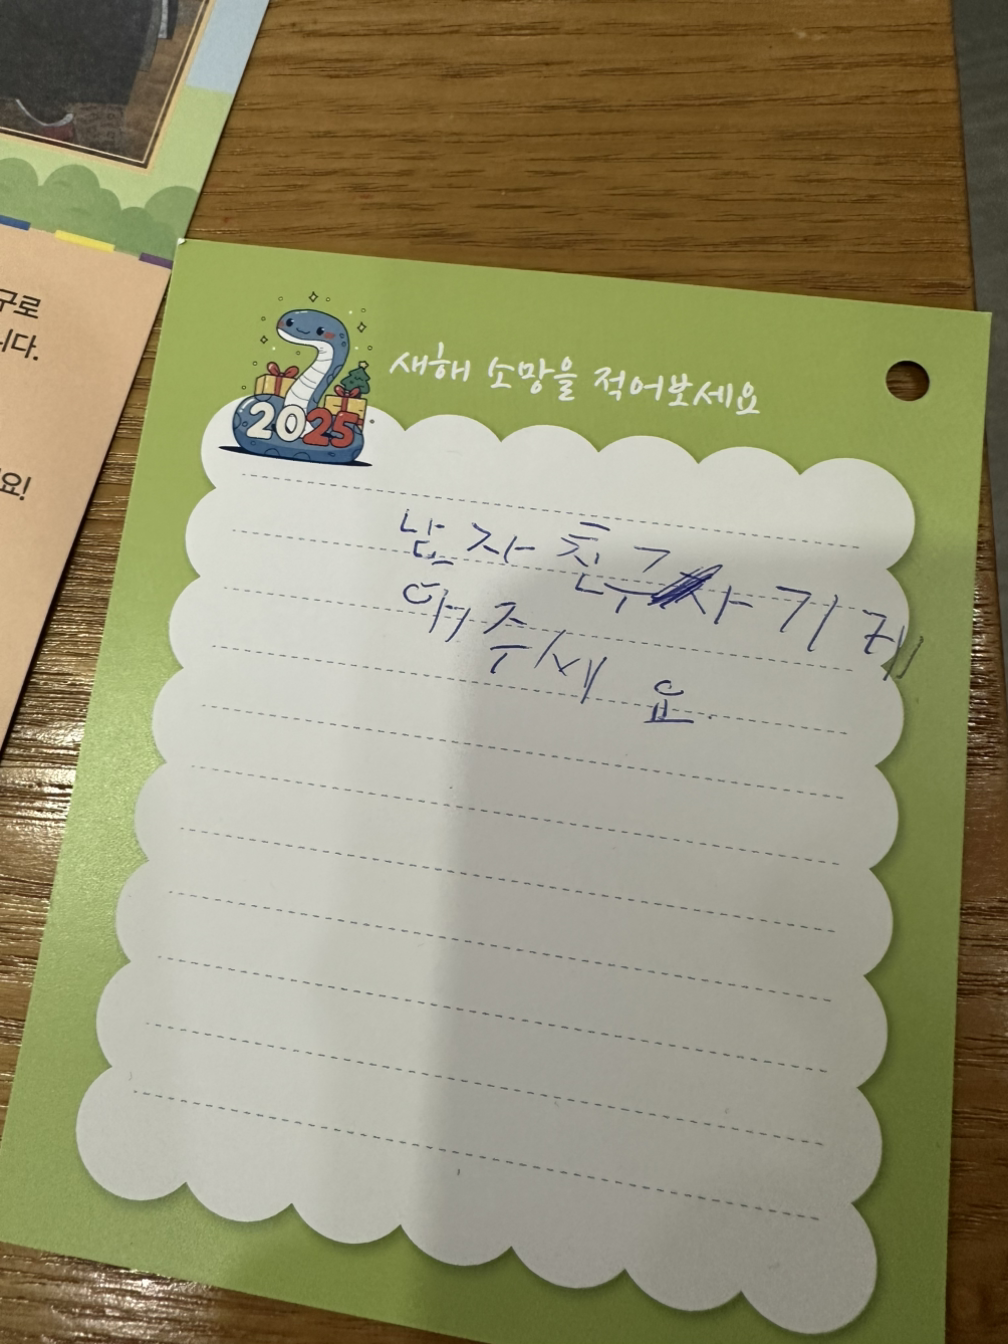 구로
니다.
요!
2025
새해 소망을 적어보세요
남자친구 사기게
해주세요.